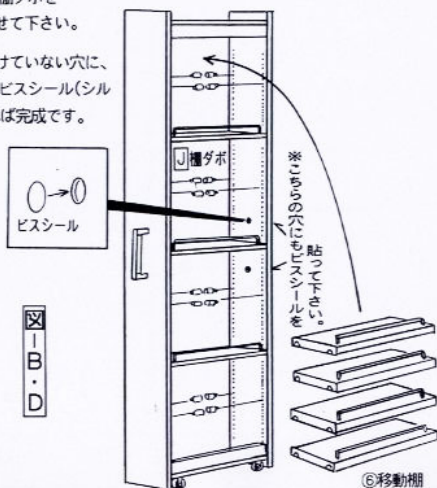 せて下さい。
けていない穴に、
ビスシール(シル
ば完成です。
J棚ダボ
ビスシール
※こちらの穴にもビスシールを
貼って下さい。
図－B・D
⑥移動棚